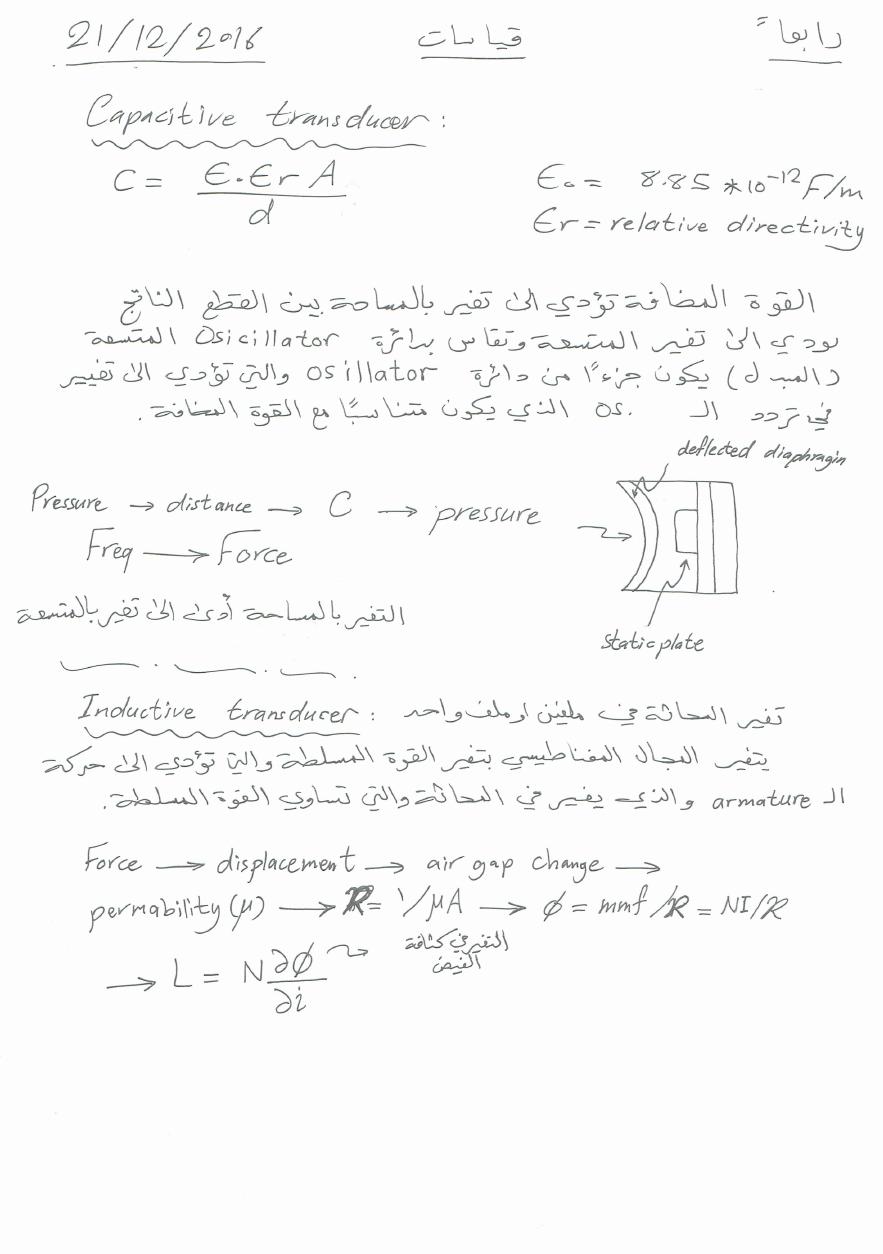 رابعاً
قياسات
21/12/2016
Capacitive transducer :
C = ϵ∘ϵr A / d
ϵ∘ = 8.85 *10⁻¹² F/m
ϵr = relative directivity
القوة المضافة تؤدي الى تغير بالمساحة بين القطع الناتج
يودي الى تغير المتسعة وتقاس بدائرة Osicillator المتسعة
(المبدل) يكون جزءًا من دائرة osillator والتي تؤدي الى تغيير
في تردد الـ os. الذي يكون متناسبًا مع القوة المضافة.
deflected diaphragin
Pressure → distance → C → pressure
Freq → Force
static plate
التغير بالمساحة أدى الى تغير بالمتسعة
Inductive transducer : تغير المحاثة في ملفين او ملف واحد
يتغير المجال المغناطيسي بتغير القوة المسلطة والتي تؤدي الى حركة
الـ armature والذي يغير في المحاثة والتي تساوي القوة المسلطة.
Force → displacement → air gap change →
permability (μ) → R = 1/μA → φ = mmf/R = NI/R
→ L = N ∂φ/∂i
التغير في كثافة
الفيض